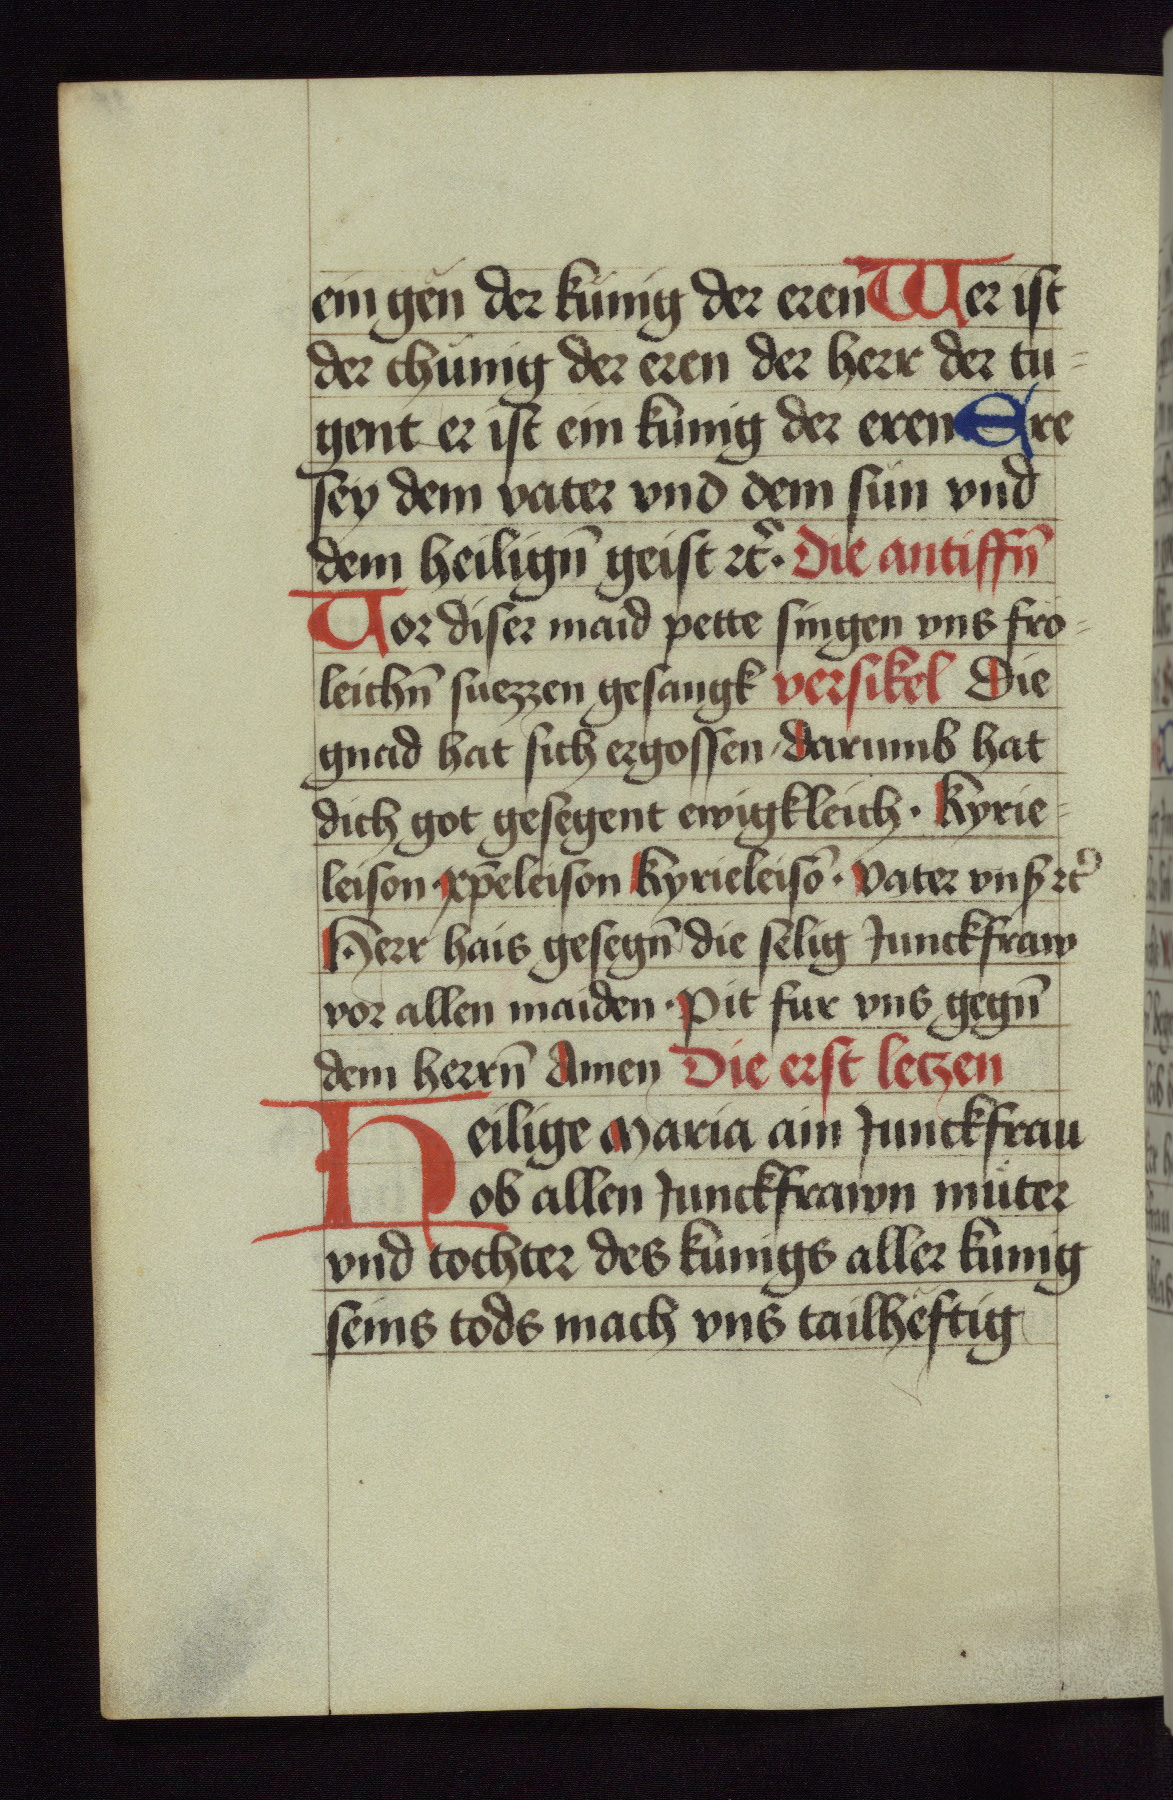 ein gen̄ der kunig der eren Wer ist
der chünig der eren der herr der tu-
gent er ist ein kunig der eren Ere
sey dem vater vnd dem sün vnd
dem heilign̄ geist ꝛc̄. Die antiffn̄
Vor diser maid pette singen vns fro-
leichn̄ suezzen gesangk versikel Die
gnad hat sich ergossen · darumb hat
dich got gesegent ewigkleich · Kyrie-
leison · xp̄eleison Kyrieleisō · Vater vnß ꝛc̄
Herr hais gesegn̄ die selig Junckfraw
vor allen maiden · Pit fur vns gegn̄
dem herrn̄ Amen Die erst letzen
Heilige Maria ain Junckfrau
ob allen Junckfrawn müter
vnd tochter des kunigs aller kunig
seins tods mach vns tailheftig